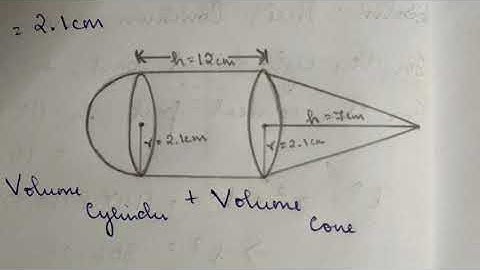 = 2.1cm
h=12cm
h=7cm
r=2.1cm
r=2.1cm
Volume + Volume
Cylinder Cone